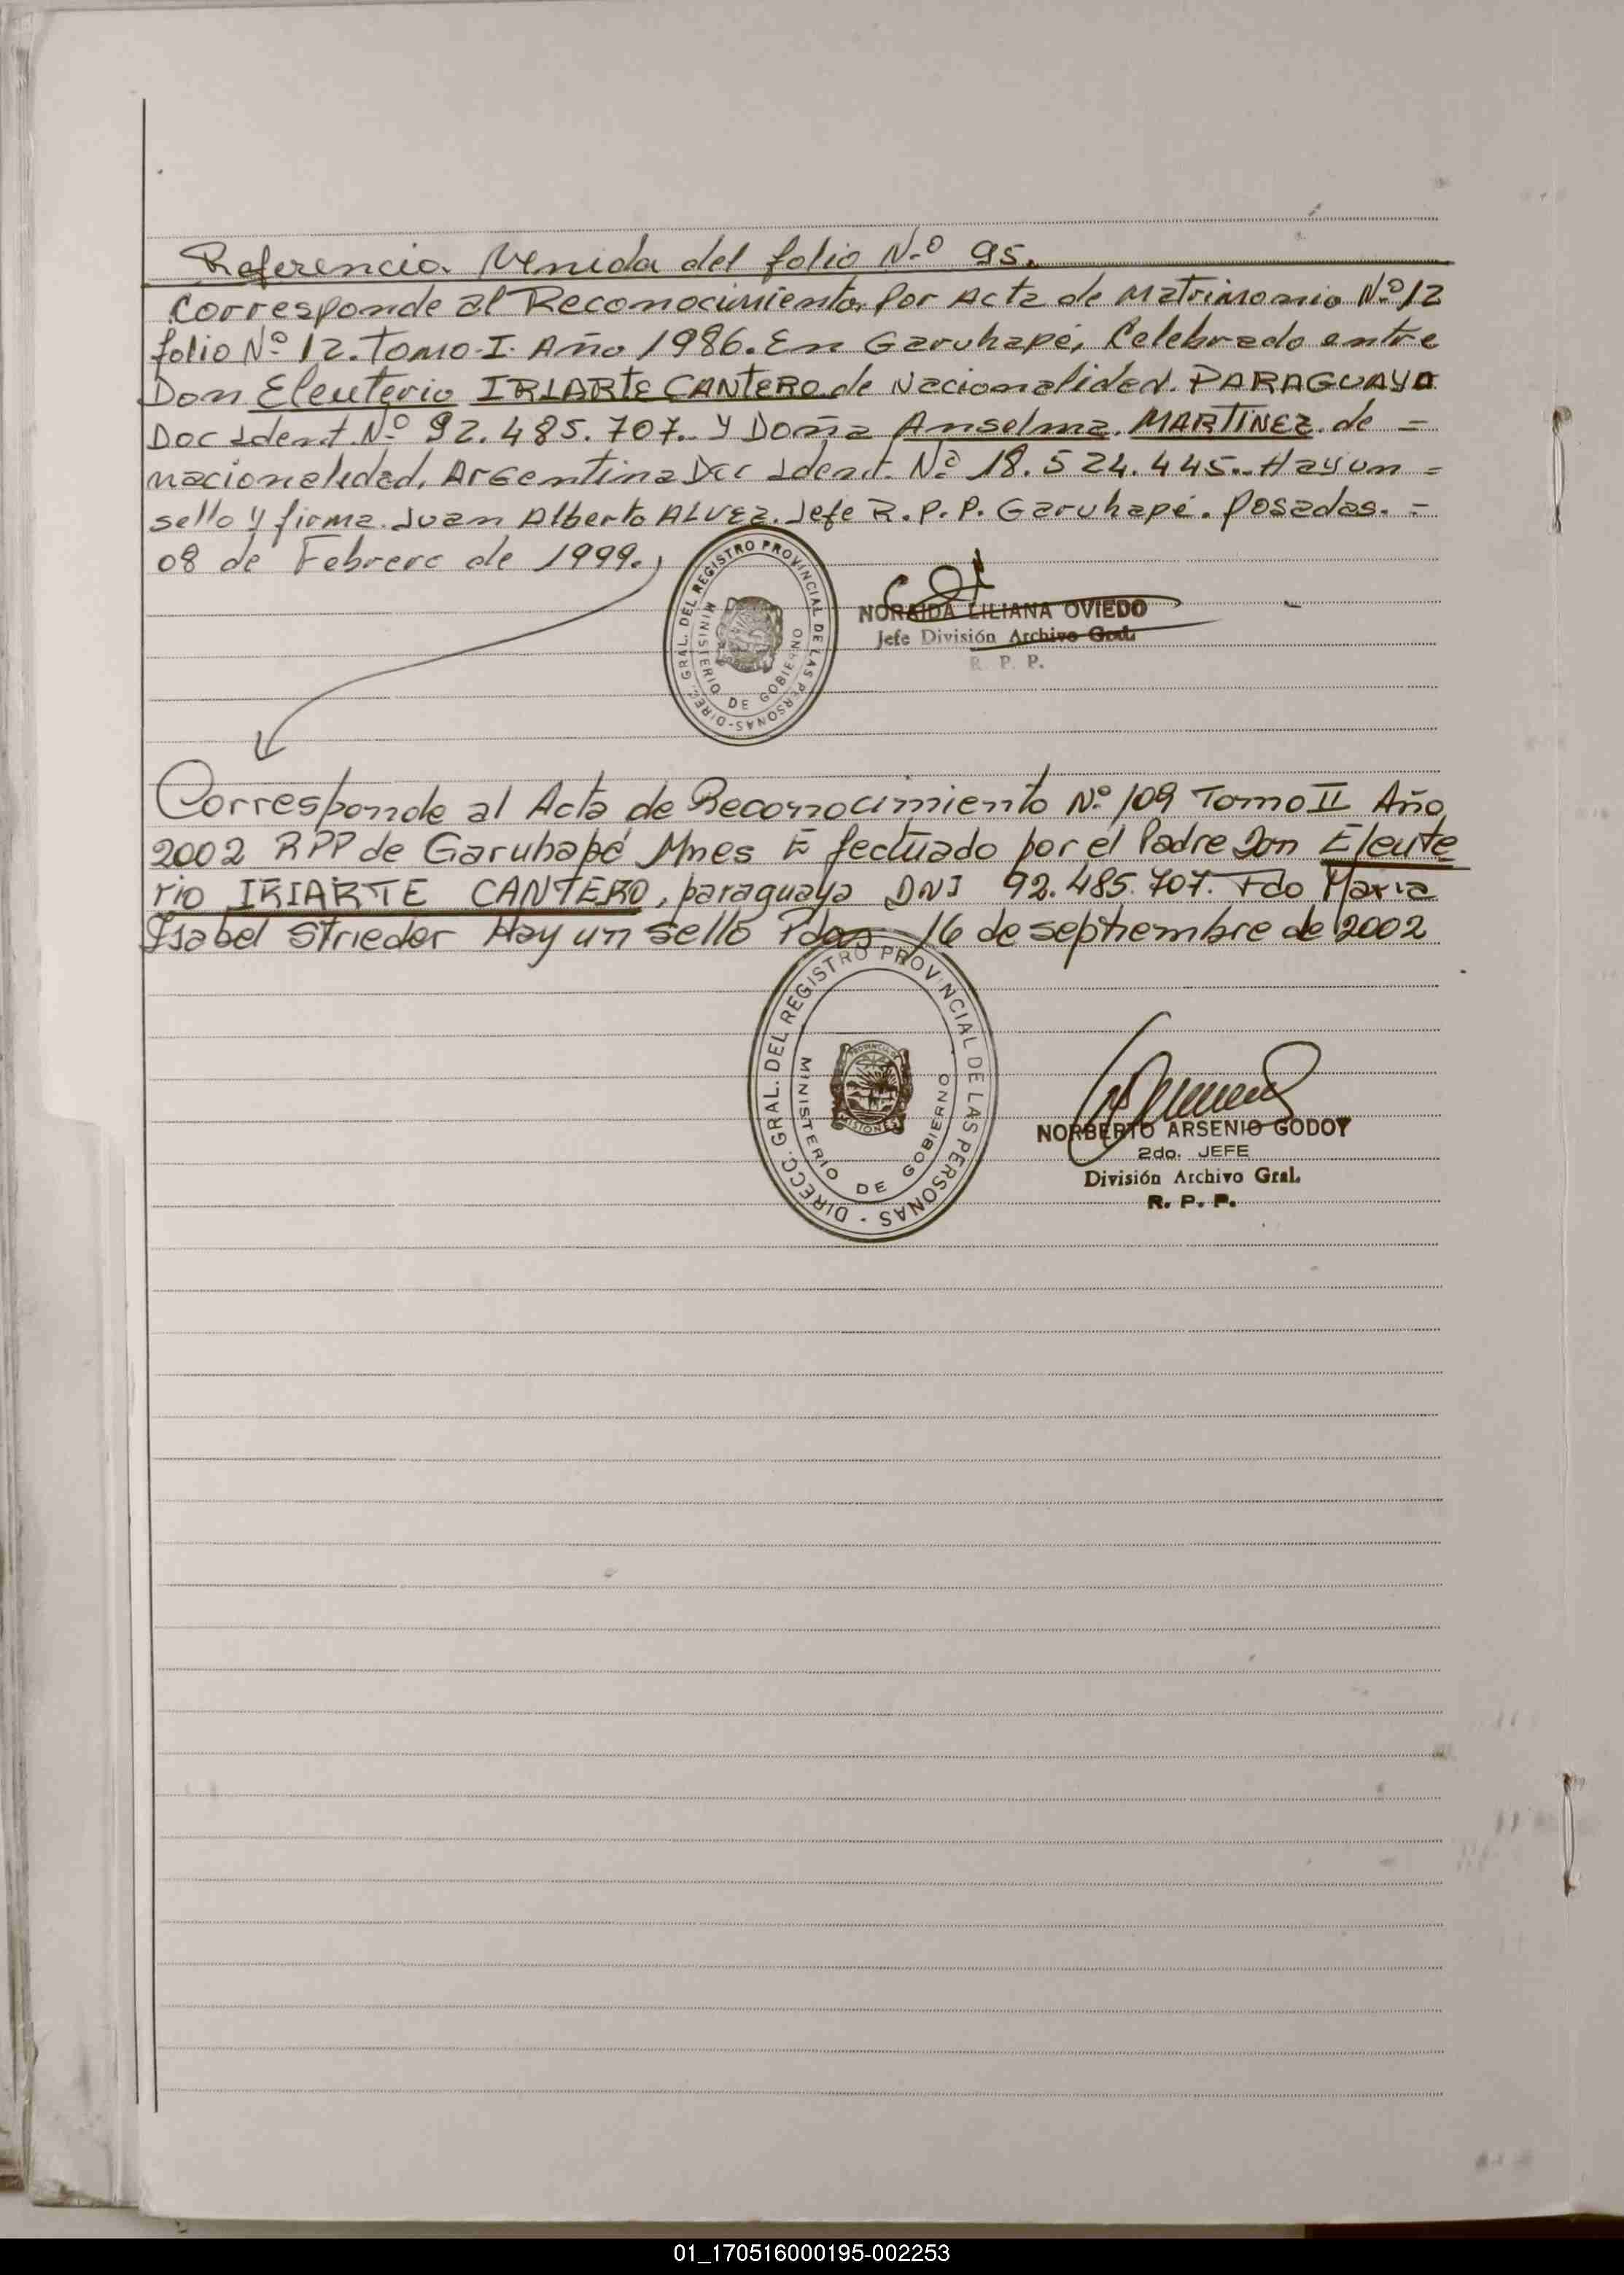 Referencia. Venida del folio N.º 95.
Corresponde al Reconocimiento. Por Acta de Matrimonio Nº 12
folio Nº 12. Tomo. I. Año 1986. En Garuhapé, Celebrado entre
Don Eleuterio IRIARTE CANTERO de Nacionalidad. PARAGUAYA
Doc Ident. Nº 92.485.707. Y Doña Anselma. MARTINEZ. de =
nacionalidad. Argentina Doc Ident. Nº 18.524.445. Hay un =
sello y firma. Juan Alberto ALVEZ. Jefe R.P.P. Garuhapé. Posadas. =
08 de Febrero de 1999.
DIREC. GRAL. DEL REGISTRO PROVINCIAL DE LAS PERSONAS -
MINISTERIO DE GOBIERNO
NORAIDA LILIANA OVIEDO
Jefe División Archivo Gral.
R. P. P.
Corresponde al Acta de Reconocimiento Nº 109 Tomo II Año
2002 RPP de Garuhapé Mnes Efectuado por el Padre Don Eleute
rio IRIARTE CANTERO, paraguaya DNI 92.485.707. Fdo Maria
Isabel Strieder Hay un sello Pdas 16 de septiembre de 2002
DIRECC. GRAL. DEL REGISTRO PROVINCIAL DE LAS PERSONAS -
MINISTERIO DE GOBIERNO
PROVINCIA DE
MISIONES
NORBERTO ARSENIO GODOY
2do. JEFE
División Archivo Gral.
R. P. P.
01_170516000195-002253